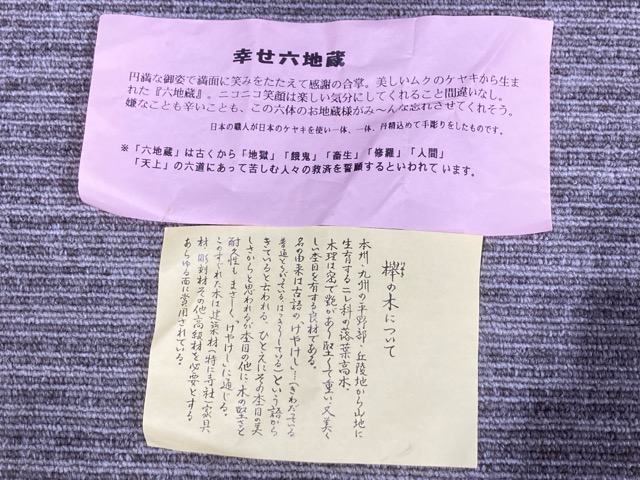 幸せ六地蔵
円満な御姿で満面に笑みをたたえて感謝の合掌。美しいムクのケヤキから生ま
れた『六地蔵』。ニコニコ笑顔は楽しい気分にしてくれること間違いなし。
嫌なことも辛いことも、この六体のお地蔵様がみ～んな忘れさせてくれそう。
日本の職人が日本のケヤキを使い一体、一体、丹精込めて手彫りをしたものです。
※「六地蔵」は古くから「地獄」「餓鬼」「畜生」「修羅」「人間」
「天上」の六道にあって苦しむ人々の救済を誓願するといわれて います。
欅の木について
本州・九州の平野部、丘陵地から山地に
生育するニレ科の落葉高木。
木理は密で艶があり堅くて重い、又美く
しい杢目を有する良材である。
名の由来は古語の「けやけし」―(きわだっている
普通とちがっている、はっきりしている)という語から
きていると云われる。ひとえにその杢目の美
しさからと思われるが杢目の他に木の堅さと
耐久性もまさしく、けやけしに通じる。
このすぐれた木は建築材(特に寺社)家具
材、彫刻材その他高級材を必要とする
あらゆる面に賞用されている。